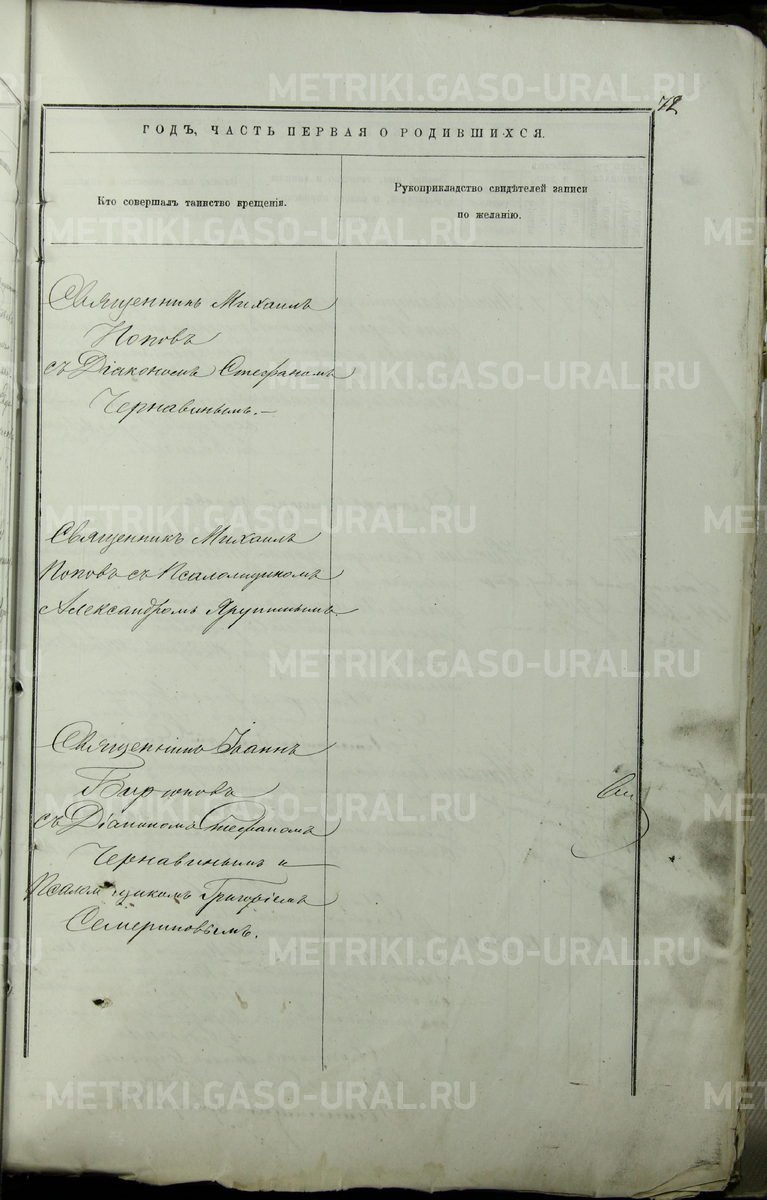 72
ГОДЪ, ЧАСТЬ ПЕРВАЯ О РОДИВШИХСЯ.
Кто совершалъ таинство крещенія.
Рукоприкладство свидѣтелей записи
по желанію.
Священникъ Михаилъ
Поповъ
съ Діакономъ Стефаномъ
Чернавинымъ. —
Священникъ Михаилъ
Поповъ съ Псаломщикомъ
Александромъ Ярутинымъ.
Священникъ Іоаннъ
Бирюковъ
съ Діакономъ Стефаномъ
Чернавинымъ и
Псаломщикомъ Григоріемъ
Семериновымъ.
METRIKI.GASO-URAL.RU